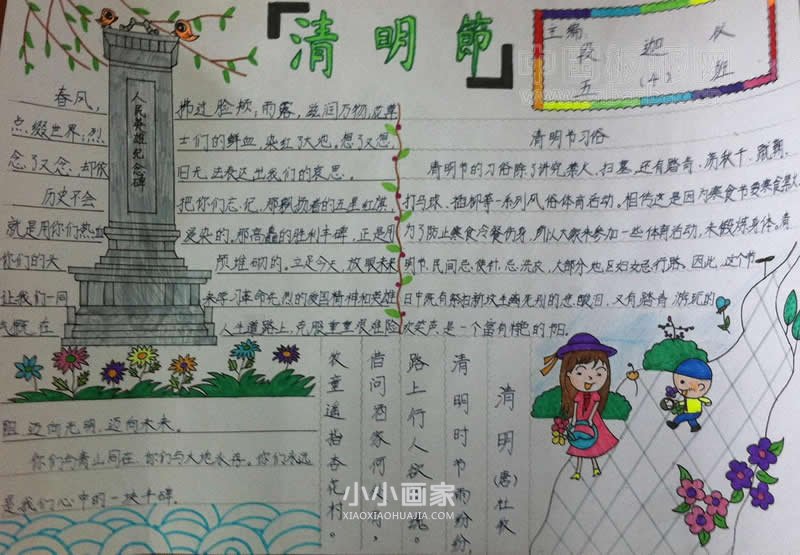 清明節
主编
段迦
五(4)班
人民英雄纪念碑
春风,拂过脸颊;雨露,滋润万物,花草
点缀世界;烈士们的鲜血,染红了大地,想了又想,
念了又念,却依旧无法表达出我们的哀思。
历史不会把你们忘记,那飘扬着的五星红旗,
就是用你们热血爱染的。那高矗的胜利丰碑,正是用
你们的头颅堆砌的。立足今天,放眼未来
让我们一同来学习革命先烈的爱国精神和英雄
气概,在人生道路上,克服重重艰难险
阻,迈向光明,迈向未来。
你们与青山同在,你们与大地永存。你们永远
是我们心中的一块丰碑。
清明节习俗
清明节的习俗除了讲究禁火、扫墓,还有踏青、荡秋千、蹴鞠、
打马球、插柳等一系列风俗体育活动。相传这是因为寒食节要寒食禁火
为了防止寒食冷餐伤身,所以大家来参加一些体育活动,来锻炼身体。清
明节,民间忌使针,忌洗衣,大部分地区妇女忌行路。因此,这个节
日中既有祭扫新坟生离死别的悲酸泪,又有踏青游玩的
欢笑声,是一个富有特色的节日。
清明
(唐)杜牧
清明时节雨纷纷,
路上行人欲
借问酒家何
牧童遥指杏花村。
小小画家
XIAOXIAOHUAJIA.COM